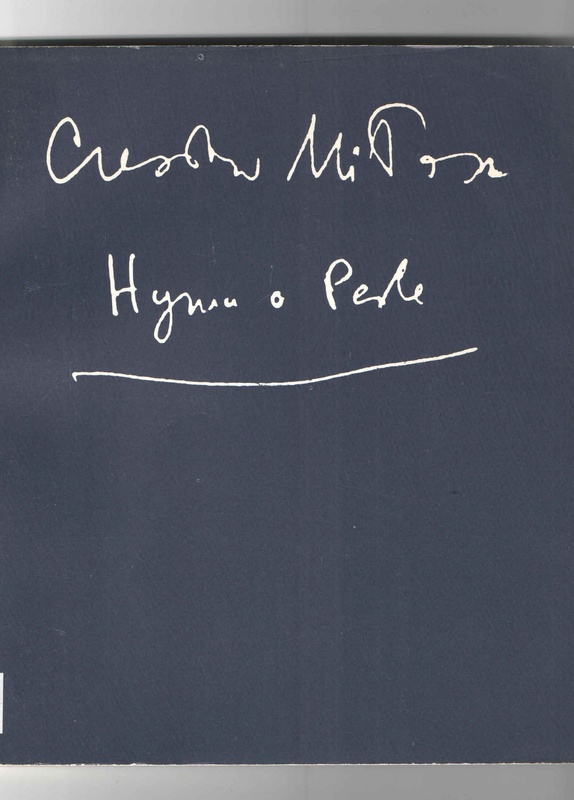 Czesław Miłosz
Hymn o Perle